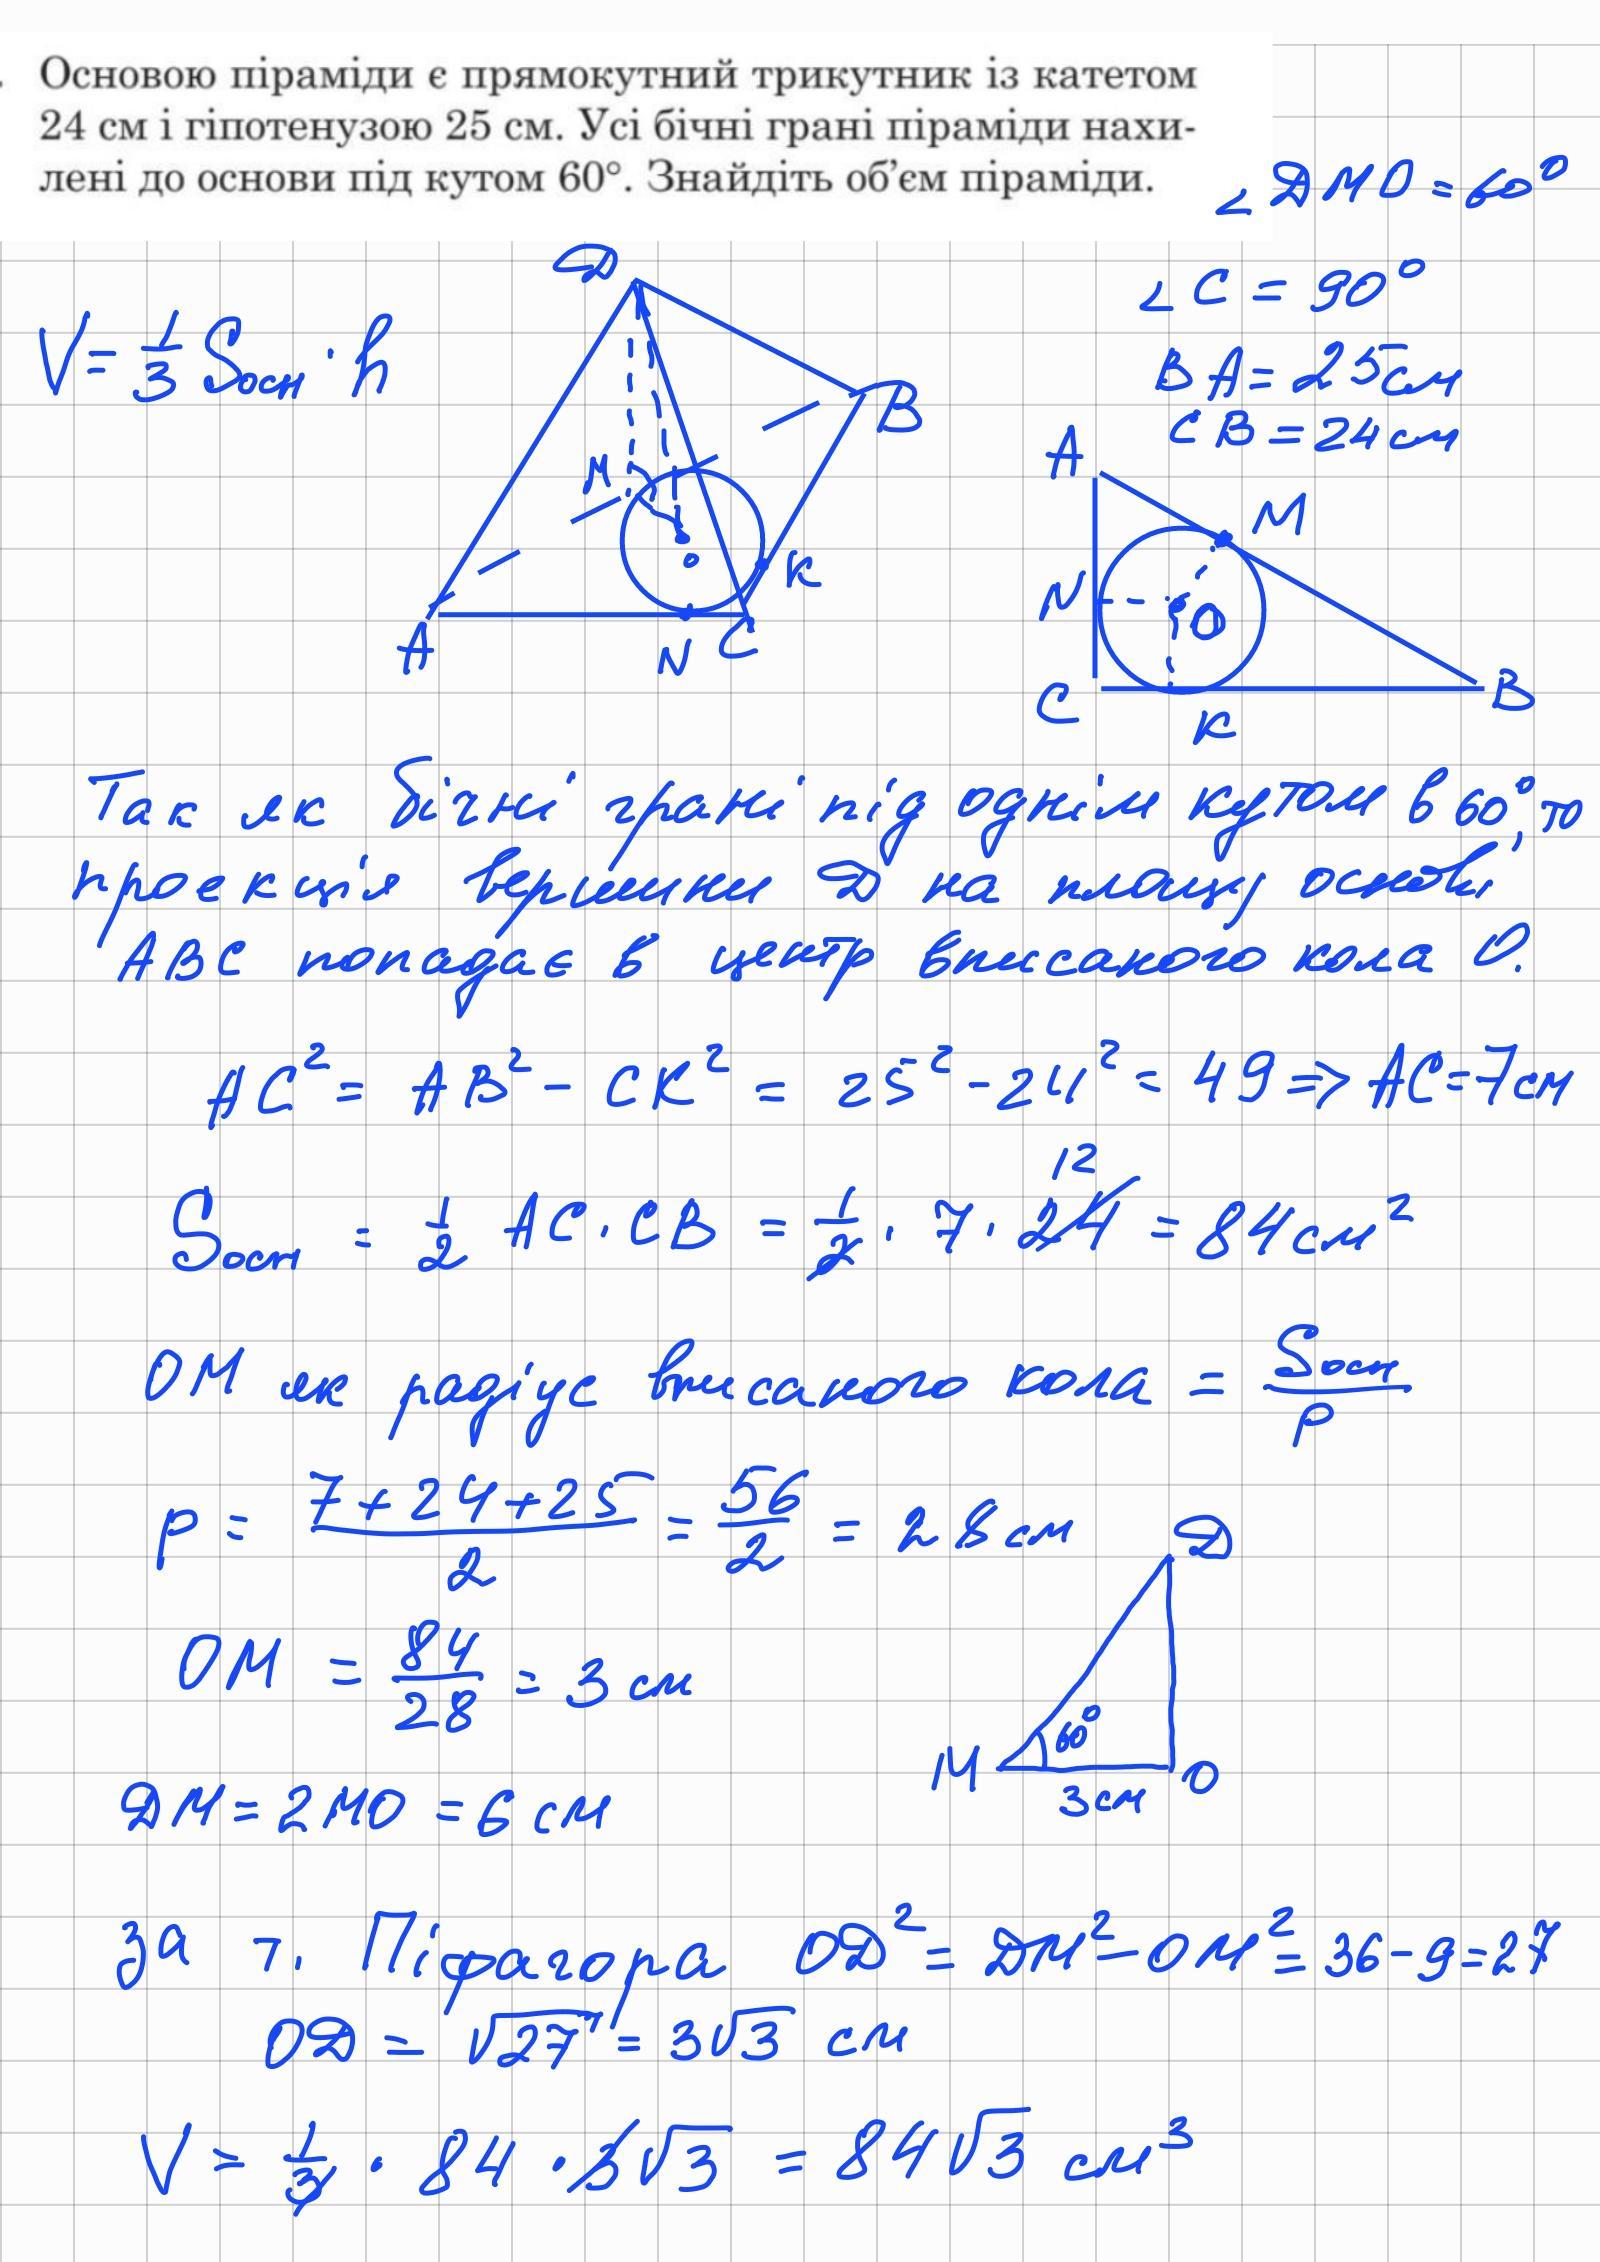 Основою піраміди є прямокутний трикутник із катетом
24 см і гіпотенузою 25 см. Усі бічні грані піраміди нахи-
лені до основи під кутом 60°. Знайдіть об'єм піраміди.
∠DMO = 60°
∠C = 90°
BA = 25см
CB = 24см
V = 1/3 Sосн · h
D
B
M
O
K
A
N
C
A
M
N
O
C
K
B
Так як бічні грані під однім кутом в 60°, то
проекція вершини D на площу основи
ABC попадає в центр вписаного кола O.
AC² = AB² - CK² = 25² - 24² = 49 => AC = 7см
Sосн = 1/2 AC · CB = 1/2 · 7 · 24 12 = 84см²
OM як радіус вписаного кола = Sосн/p
p = (7+24+25)/2 = 56/2 = 28см
OM = 84/28 = 3 см
D
60°
M
O
3см
DM = 2MO = 6 см
За т. Піфагора OD² = DM² - OM² = 36 - 9 = 27
OD = √27 = 3√3 см
V = 1/3 · 84 · 3√3 = 84√3 см³